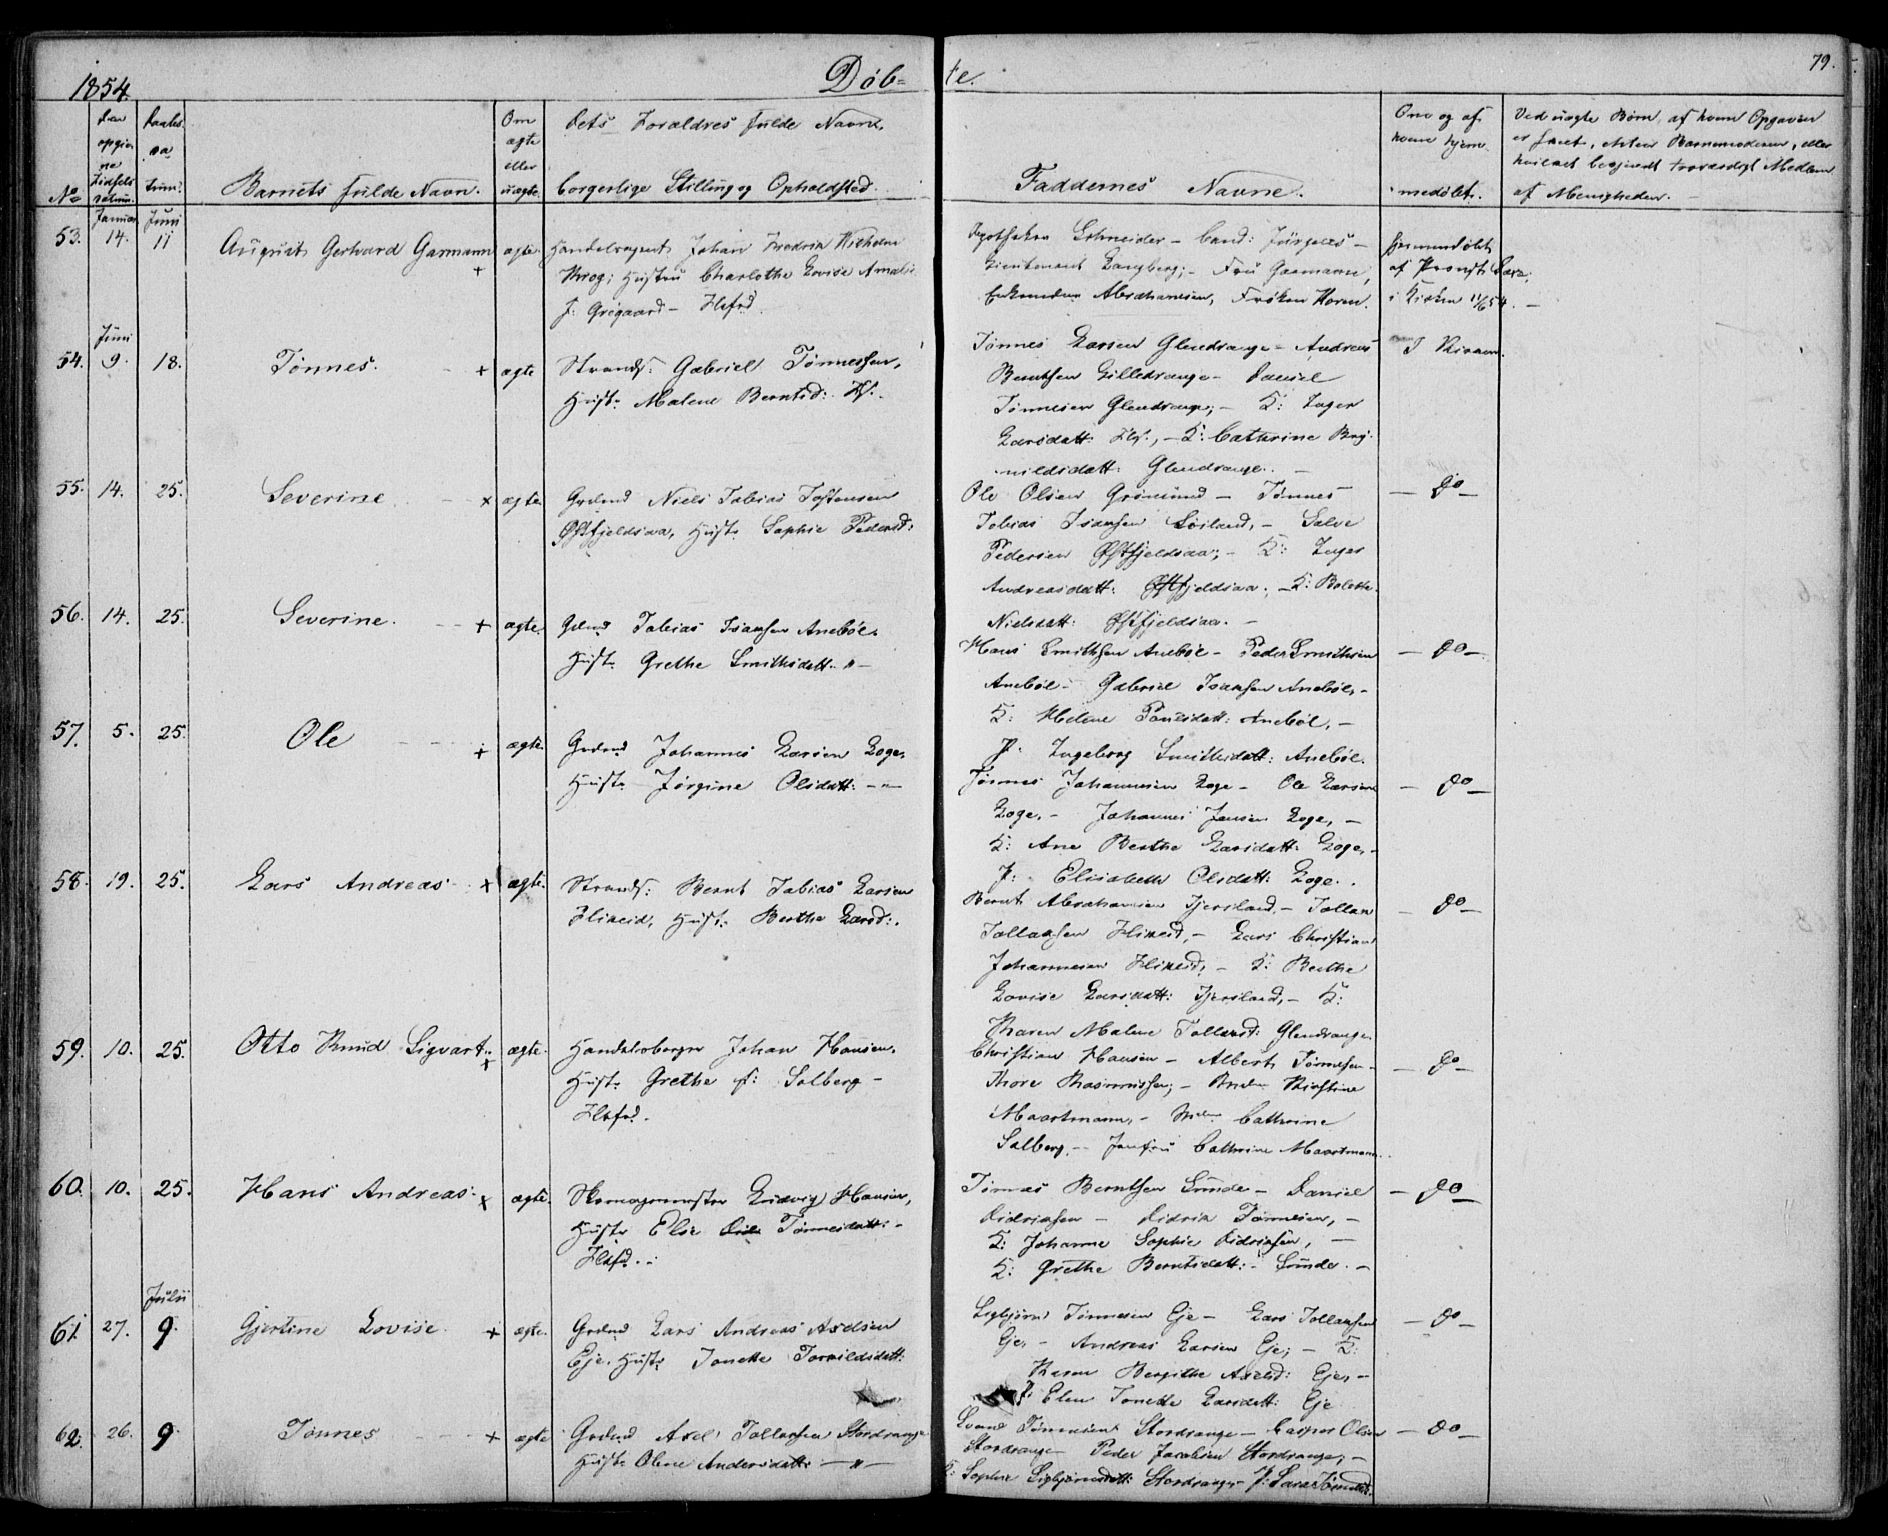 1854.
Døb-
te.
79.
No
Den opgivne Fødselsdatum.
Daabsdatum.
Barnets fulde Navn.
Om ægte eller uægte.
Dets Forældres fulde Navne,
borgerlige Stilling og Opholdsted.
Faddernes Navne.
Om og af hvem hjemmedøbt.
Ved uægte Børn, af hvem Opgaven
er skeet, enten Barnemoderen, eller
hvilket besynderligt troværdigt Medlem
af Menigheden.
Januar Juni
53. 14. 11 August Gerhard Garmann + ægte Handelsagent Johan Fredrik Wilhelm
Krog; Hustru Charlothe Lovise Amalie
f: Grogaard - Flkfrd.
Apotheker Schneider - Cand: Jürgens -
Lieutenant Langberg; - Fru Garmann,
Enkemdm Abrahamsen, Frøken Horen.
Hjemmedøbt
af Provst
i Kirken 11/6 54. -
Juni
54. 9. 18. Tønnes. + ægte Strands: Gabriel Tønnessen,
Hustr Malene Berntsd: Hf.
Tønnes Larsen Glendrange - Andreas
Berntsen Lilledrange - Daniel
Tønnesen Glendrange; - K: Inger
Larsdatt: - K: Cathrine
Glendrange. -
I Kirken.
55. 14. 25. Severine + ægte Grdmd Niels Tobias Tostensen
Østfjeldsaa, Hustr Sophie Pedersd:
Ole Olsen Grimund - Tønnes
Tobias Isaksen - Salve
Pedersen Østfjeldsaa; - K: Inger
Andreasdatt: Østfjeldsaa; - K: Bolette
Nielsdatt: Østfjeldsaa. -
- do -
56. 14. 25. Severine. + ægte. Grdmd Tobias Isaksen Anebøe.
Hustr Grethe Smithsdatt. " -
Hans Smithsen Anebøe - Peder Smithsen
Anebøl - Gabriel Isaksen Anebøl, -
K: Helene Poulsdatt: Anebøl, -
P: Ingeborg Smithsdatt: Anebøl.
- do -
57. 5. 25. Ole + ægte. Grdmd Johannes Larsen Loge,
Hustr Jørgine Olsdatt: - " -
Tønnes Johannesen Loge - Ole Larsen
Loge, - Johannes Jansen Loge, -
K: Ane Berthe Larsdatt: Loge, -
P: Elisabeth Olsdatt: Loge.
- do -
58. 19. 25. Lars Andreas + ægte. Strands: Bernt Tobias Larsen
Flikeid, Hustr Berthe Larsd:.
Bernt Abrahamsen Tjersland, - Tollak
Tollaksen Flikeid, - Lars Christian
Johannesen Flikeid, - K: Berthe
Lovise Larsdatt: Tjersland, - K:
Karen Malene Tollaksd: Glendrange.
- do -
59. 10. 25. Otto Knud Sigvart. + ægte. Handelsborger Johan Hansen,
Hustr Grethe f: Salberg -
Flkfrd.
Christian Hansen - Albert Tønnesen -
Thore Rasmussen; - Kirstine
Maartmann, - Cathrine
Salberg. - Jomfru Cathrine Maartmann.
- do -
60. 10. 25. Hans Andreas. + ægte. Skomagermester Ludvig Hansen,
Hustr Else Tønnesdatt: -
Flkfd. -
Tønnes Berntsen Sunde - Daniel
Didriksen - Didrik Tønnesen, -
K: Johanne Sophie Didriksen, -
K: Grethe Berntsdatt: - Sunde. -
- do -
Julii
61. 27. 9. Gjertine Lovise + ægte. Grdmd Lars Andreas Axelsen
Eje. Hustr Tonette Torkildsdatt:
Sigbjørn Tønnesen Eje - Lars Tollaksen
Eje, - Andreas Larsen Eje; - K:
Karen Bergithe Axelsd: Eje, -
P: Elen Tonette Larsdatt: Eje
- do -
62. 26. 9. Tønnes + ægte Grdmd Axel Tollaksen Stordrange
Hustr Olene Andersdatt: - " -
Svend Tønnesen Stordrange - Casper Olsen
Stordrange - Peder Jacobsen Stordrange; -
K: Sophie Sigbjørnsdatt: Stordrange - P: Sara Tønnesd.
- do -